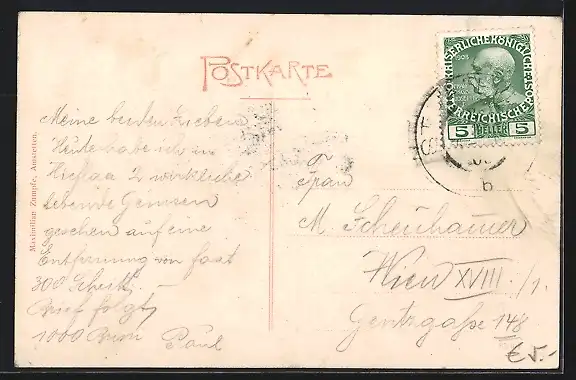 POSTKARTE
KAISERLICHE KÖNIGLICHE ÖSTERREICHISCHE POST
1908
5 HELLER 5
b
Meine beiden Lieben
Heute habe ich in
Hieflau 2 wirkliche
lebende Gemsen
gesehen auf eine
Entfernung von fast
300 Schritt. —
Brief folgt,
1000 Bussi Paul
Frau
M. Scheuhauer
Wien XVIII/1.
Gentzgaße 148
Maximilian Zumpfe, Amstetten.
€ 5.-